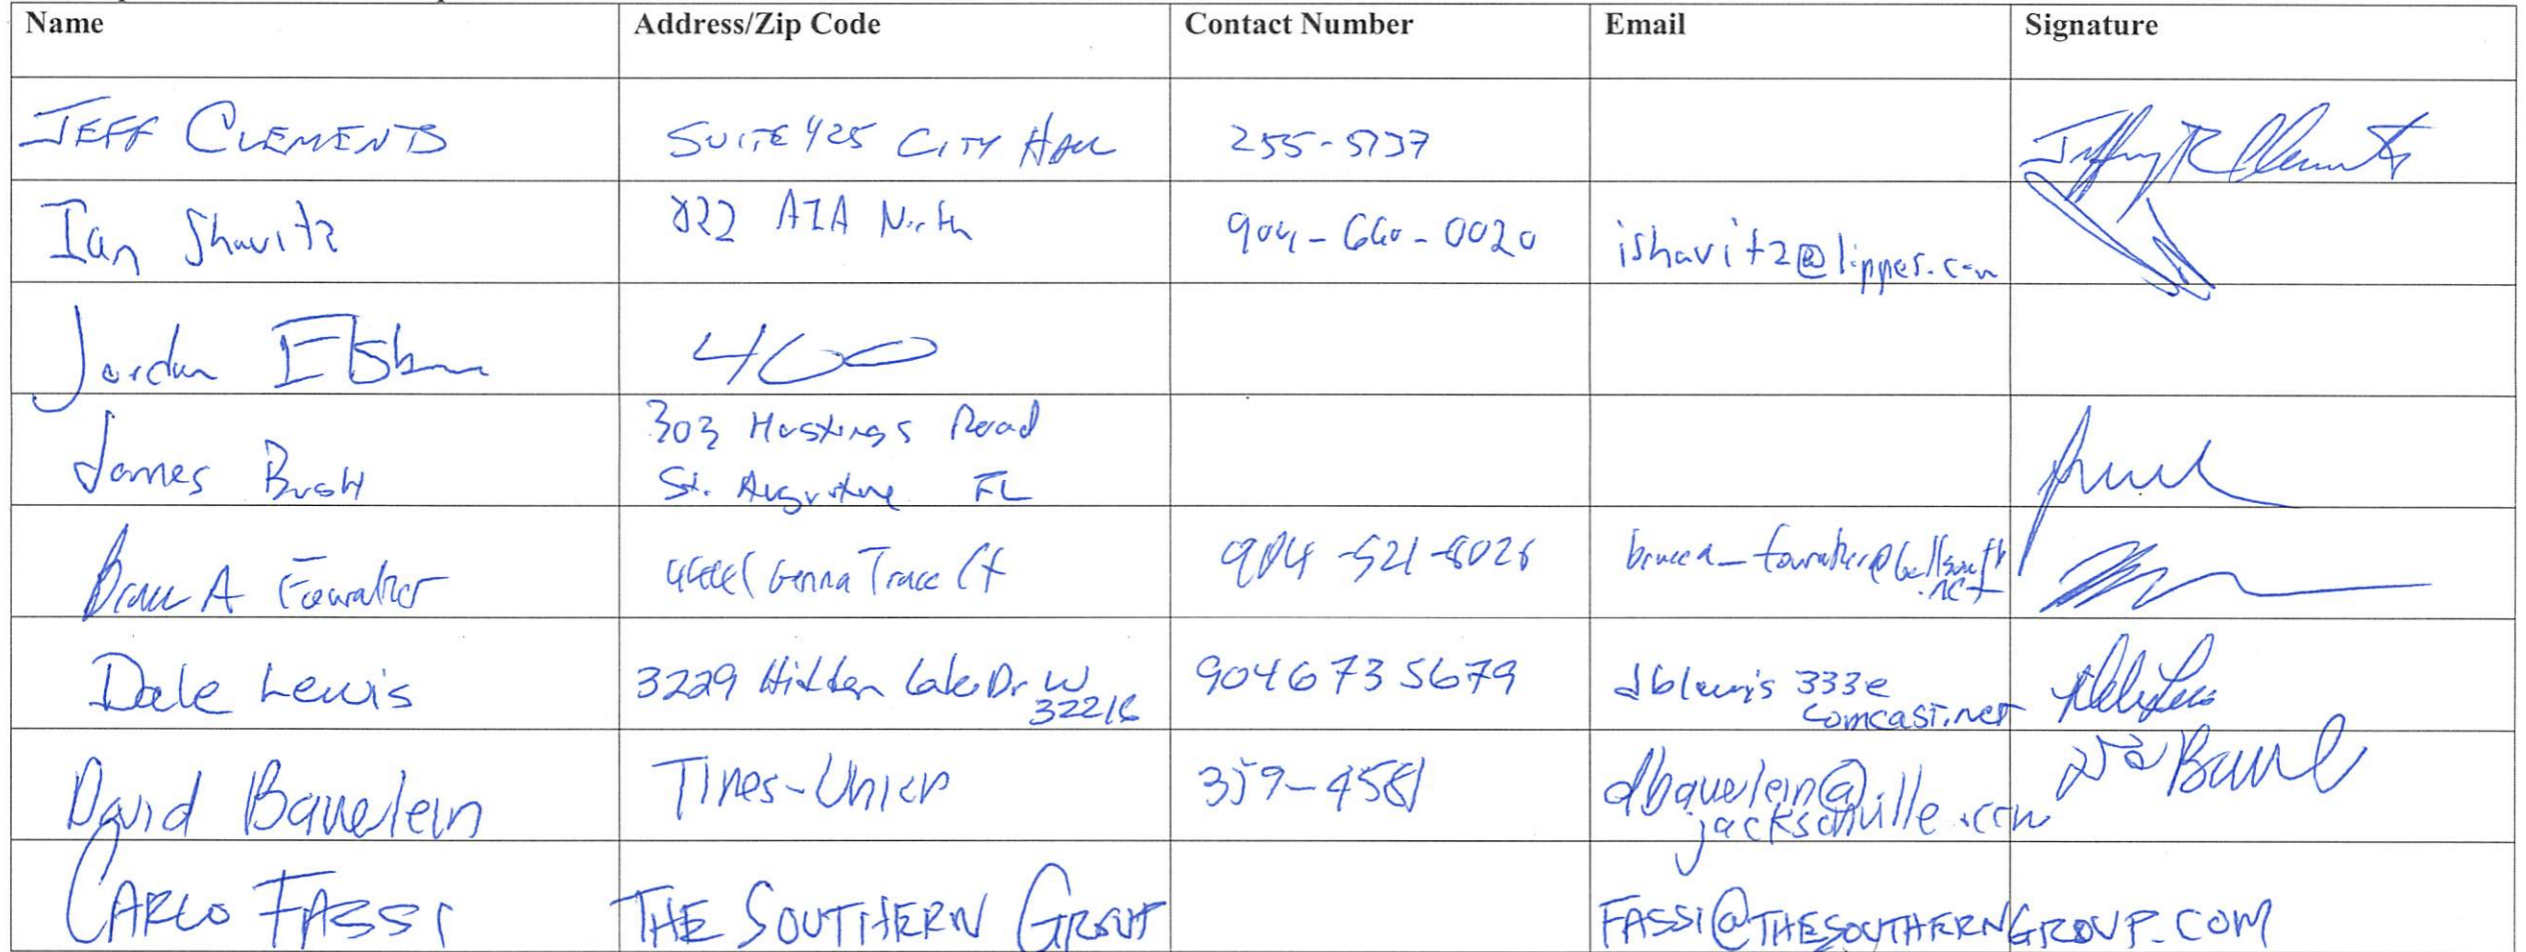 Name Address/Zip Code Contact Number Email Signature
JEFF CLEMENTS SUITE 425 CITY HALL 255-5137 Jeffrey R Clements
Ian Shavitz 822 A1A North 904-660-0020 ishavitz@lippes.com
Jordan Elsbury 400
James Bush 303 Hastings Road
St. Augustine FL
Bruce A Fouraker Genna Trace Ct 904-521-8026 brucea_fouraker@bellsouth
.net
Dale Lewis 3229 Hidden Lake Dr W 9046735679 dblewis 333@ Dale Lewis
32216 comcast.net
David Bauerlein Times-Union 359-4581 dbauerlein@
jacksonville.com
CARLO FASSI THE SOUTHERN GROUP FASSI@THESOUTHERNGROUP.COM